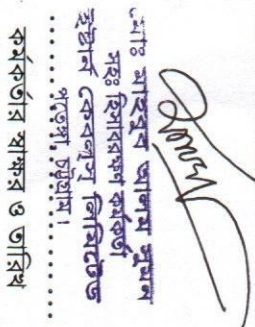 মোঃ মাহবুব আলম সুমন
সহঃ হিসাবরক্ষণ কর্মকর্তা
ইষ্টার্ন কেবলস্ লিমিটেড
পতেঙ্গা, চট্টগ্রাম।
কর্মকর্তার স্বাক্ষর ও তারিখ